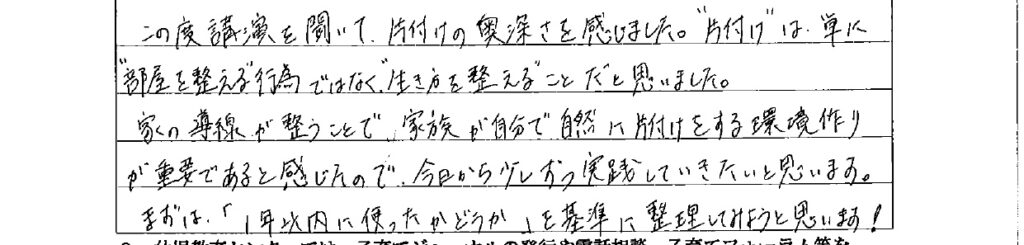 この度講演を聞いて、片付けの奥深さを感じました。"片付け"は、単に
"部屋を整える"行為ではなく、"生き方を整える"ことだと思いました。
家の導線が整うことで、家族が自分で自然に片付けをする環境作り
が重要であると感じたので、今日から少しずつ実践していきたいと思います。
まずは、「1年以内に使ったかどうか」を基準に整理してみようと思います!